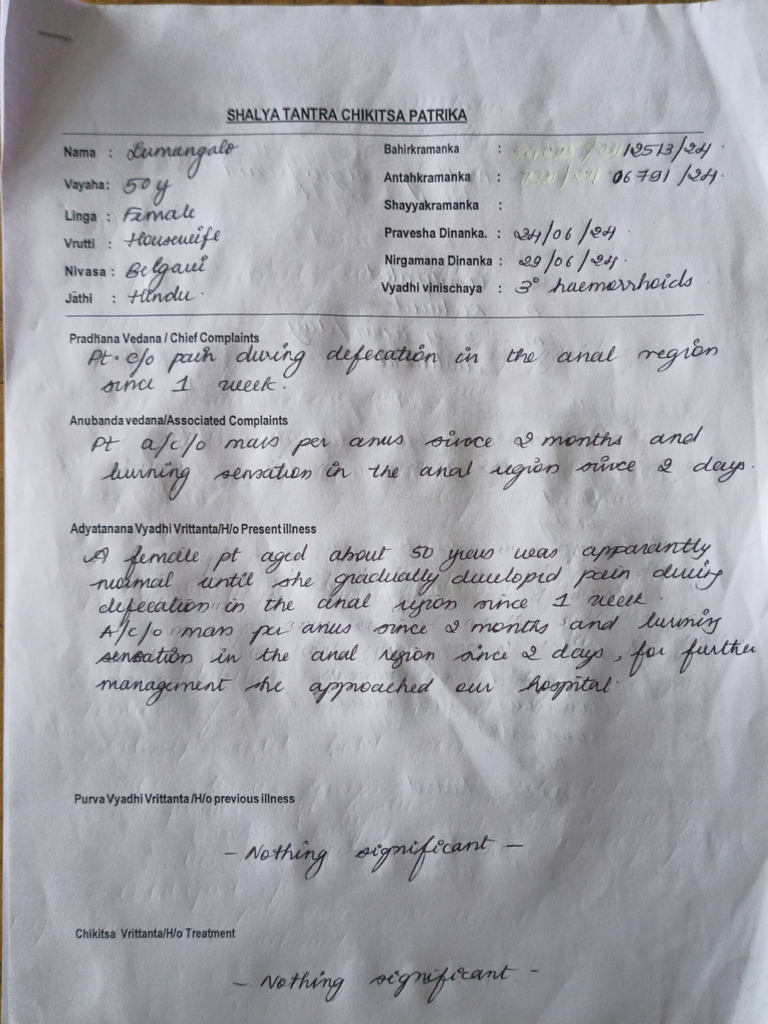 SHALYA TANTRA CHIKITSA PATRIKA
Nama :
Bahirkramanka : 12513/24
Vayaha: 50 y
Antahkramanka : 06791/24
Linga : Female
Shayyakramanka :
Vrutti : Housewife
Pravesha Dinanka. : 24/06/24
Nivasa : Belgavi
Nirgamana Dinanka : 29/06/24
Jathi : Hindu
Vyadhi vinischaya : 3° haemorrhoids
Pradhana Vedana / Chief Complaints
Pt. c/o pain during defecation in the anal region
since 1 week.
Anubanda vedana/Associated Complaints
Pt a/c/o mass per anus since 2 months and
burning sensation in the anal region since 2 days.
Adyatanana Vyadhi Vrittanta/H/o Present illness
A female pt aged about 50 years was apparantly
normal until she gradually developed pain during
defecation in the anal region since 1 week.
A/c/o mass per anus since 2 months and burning
sensation in the anal region since 2 days, for further
management she approached our hospital.
Purva Vyadhi Vrittanta /H/o previous illness
- Nothing significant -
Chikitsa Vrittanta/H/o Treatment
- Nothing significant -